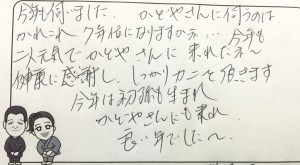 今年も伺いました。 かどやさんに伺うのは
かれこれ 7年位になりますかネ… 今年も
二人元気で かどやさんに 来れたネ〜
健康に感謝し、しっかりカニを頂きます
今年は初孫も生まれ
かどやさんにも来れ
良い年でした〜